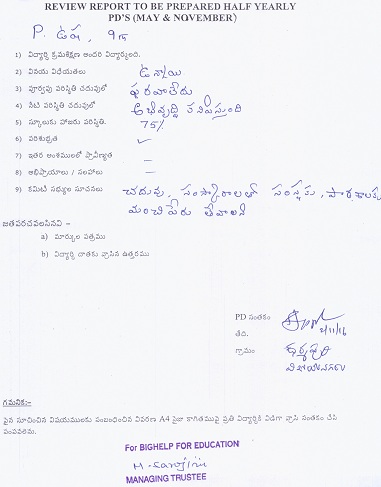 REVIEW REPORT TO BE PREPARED HALF YEARLY
PD'S (MAY & NOVEMBER)
P. ఉష, 9
1) విద్యార్థి క్రమశిక్షణ అందరి విద్యార్థులది.
2) వినయ విధేయతలు ఉన్నాయి
3) పూర్వపు పరిస్థితి చదువులో ఫరవాలేదు
4) నేటి పరిస్థితి చదువులో అభివృద్ధి కనిపిస్తుంది
5) స్కూలుకు హాజరు పరిస్థితి. 75%
6) పరిశుభ్రత ✓
7) ఇతర అంశములలో ప్రావీణ్యత –
8) అభిప్రాయాలు / సలహాలు –
9) కమిటి సభ్యుల సూచనలు చదువు, సంస్కారాలతో సంస్థకు, పాఠశాలకు
మంచిపేరు తేవాలి
జతపరచవలసినవి -
a) మార్కుల పత్రము
b) విద్యార్థి దాతకు వ్రాసిన ఉత్తరము
PD సంతకం
తేది. 2/11/16
గ్రామం ధర్మపురి
విజయనగరం
గమనిక:-
పైన సూచించిన విషయములకు సంబంధించిన వివరణ A4 సైజు కాగితముపై ప్రతి విద్యార్థికి విడిగా వ్రాసి సంతకం చేసి
పంపవలెను.
For BIGHELP FOR EDUCATION
M. Sarojini
MANAGING TRUSTEE